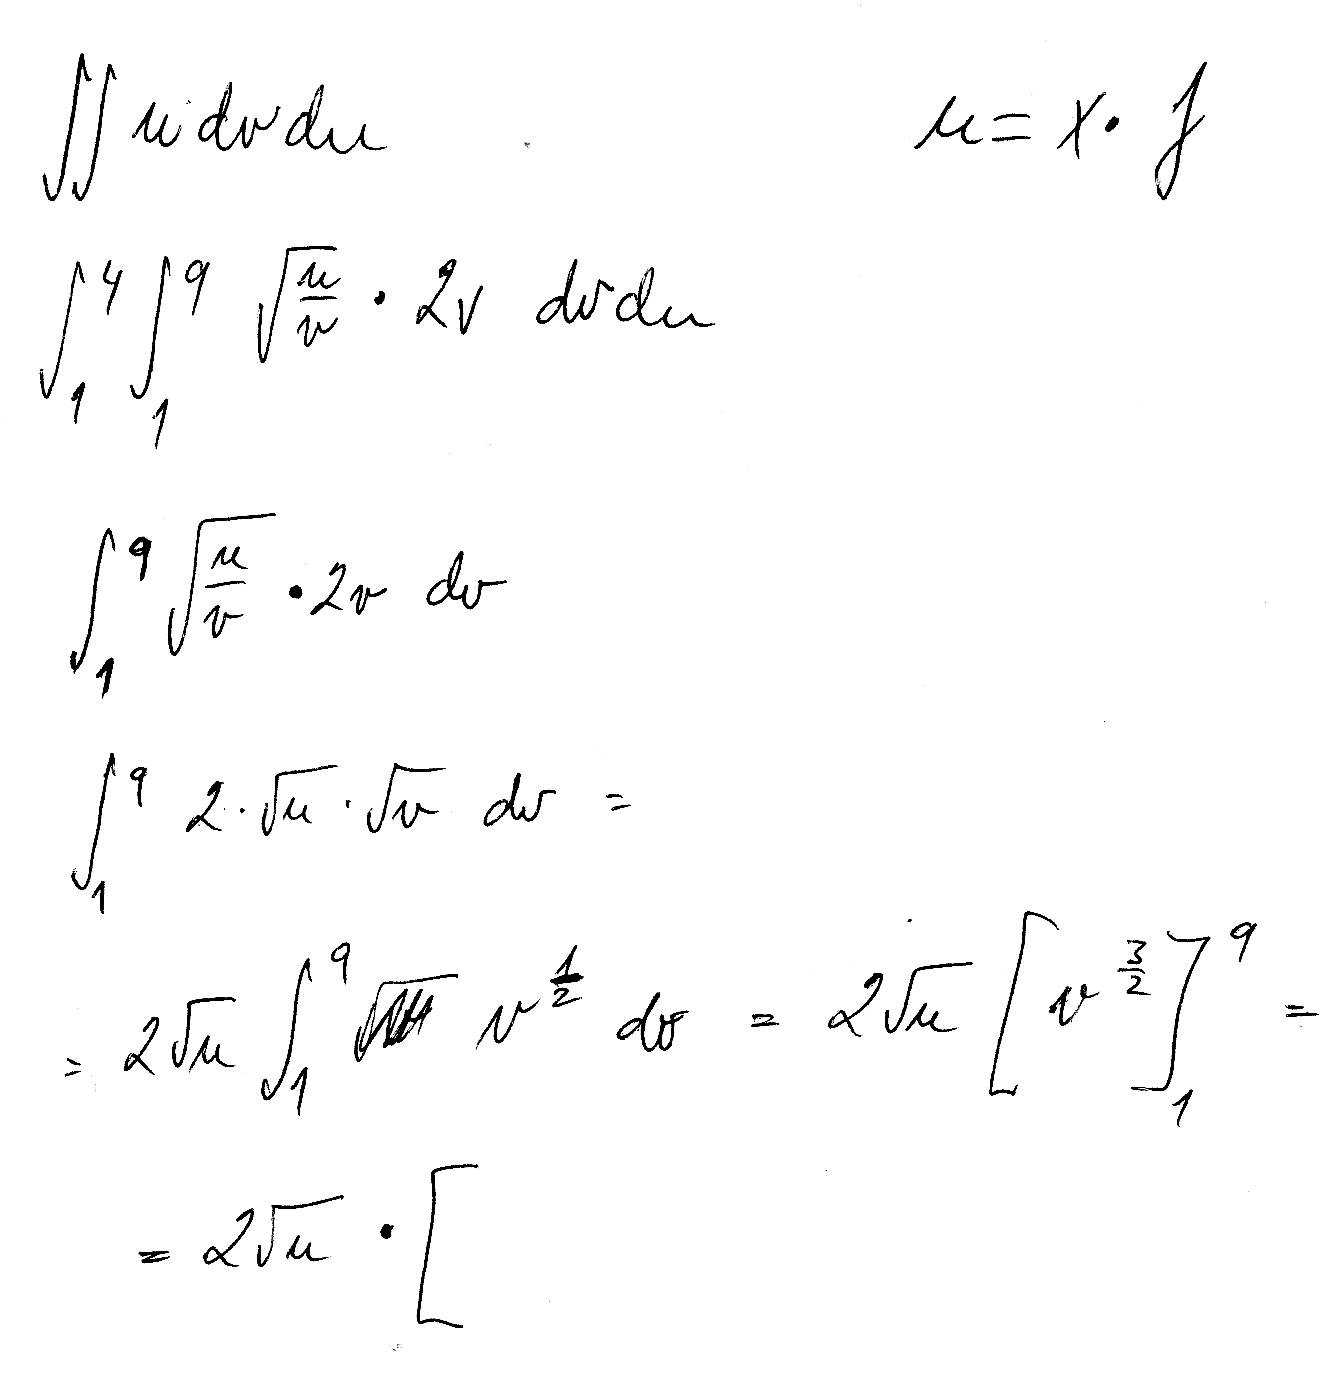 ∬ u dv du u = x · y
∫₁⁴ ∫₁⁹ √(u/v) · 2v dv du
∫₁⁹ √(u/v) · 2v dv
∫₁⁹ 2 · √u · √v dv =
= 2√u ∫₁⁹ v^(1/2) dv = 2√u [v^(3/2)]₁⁹ =
= 2√u · [